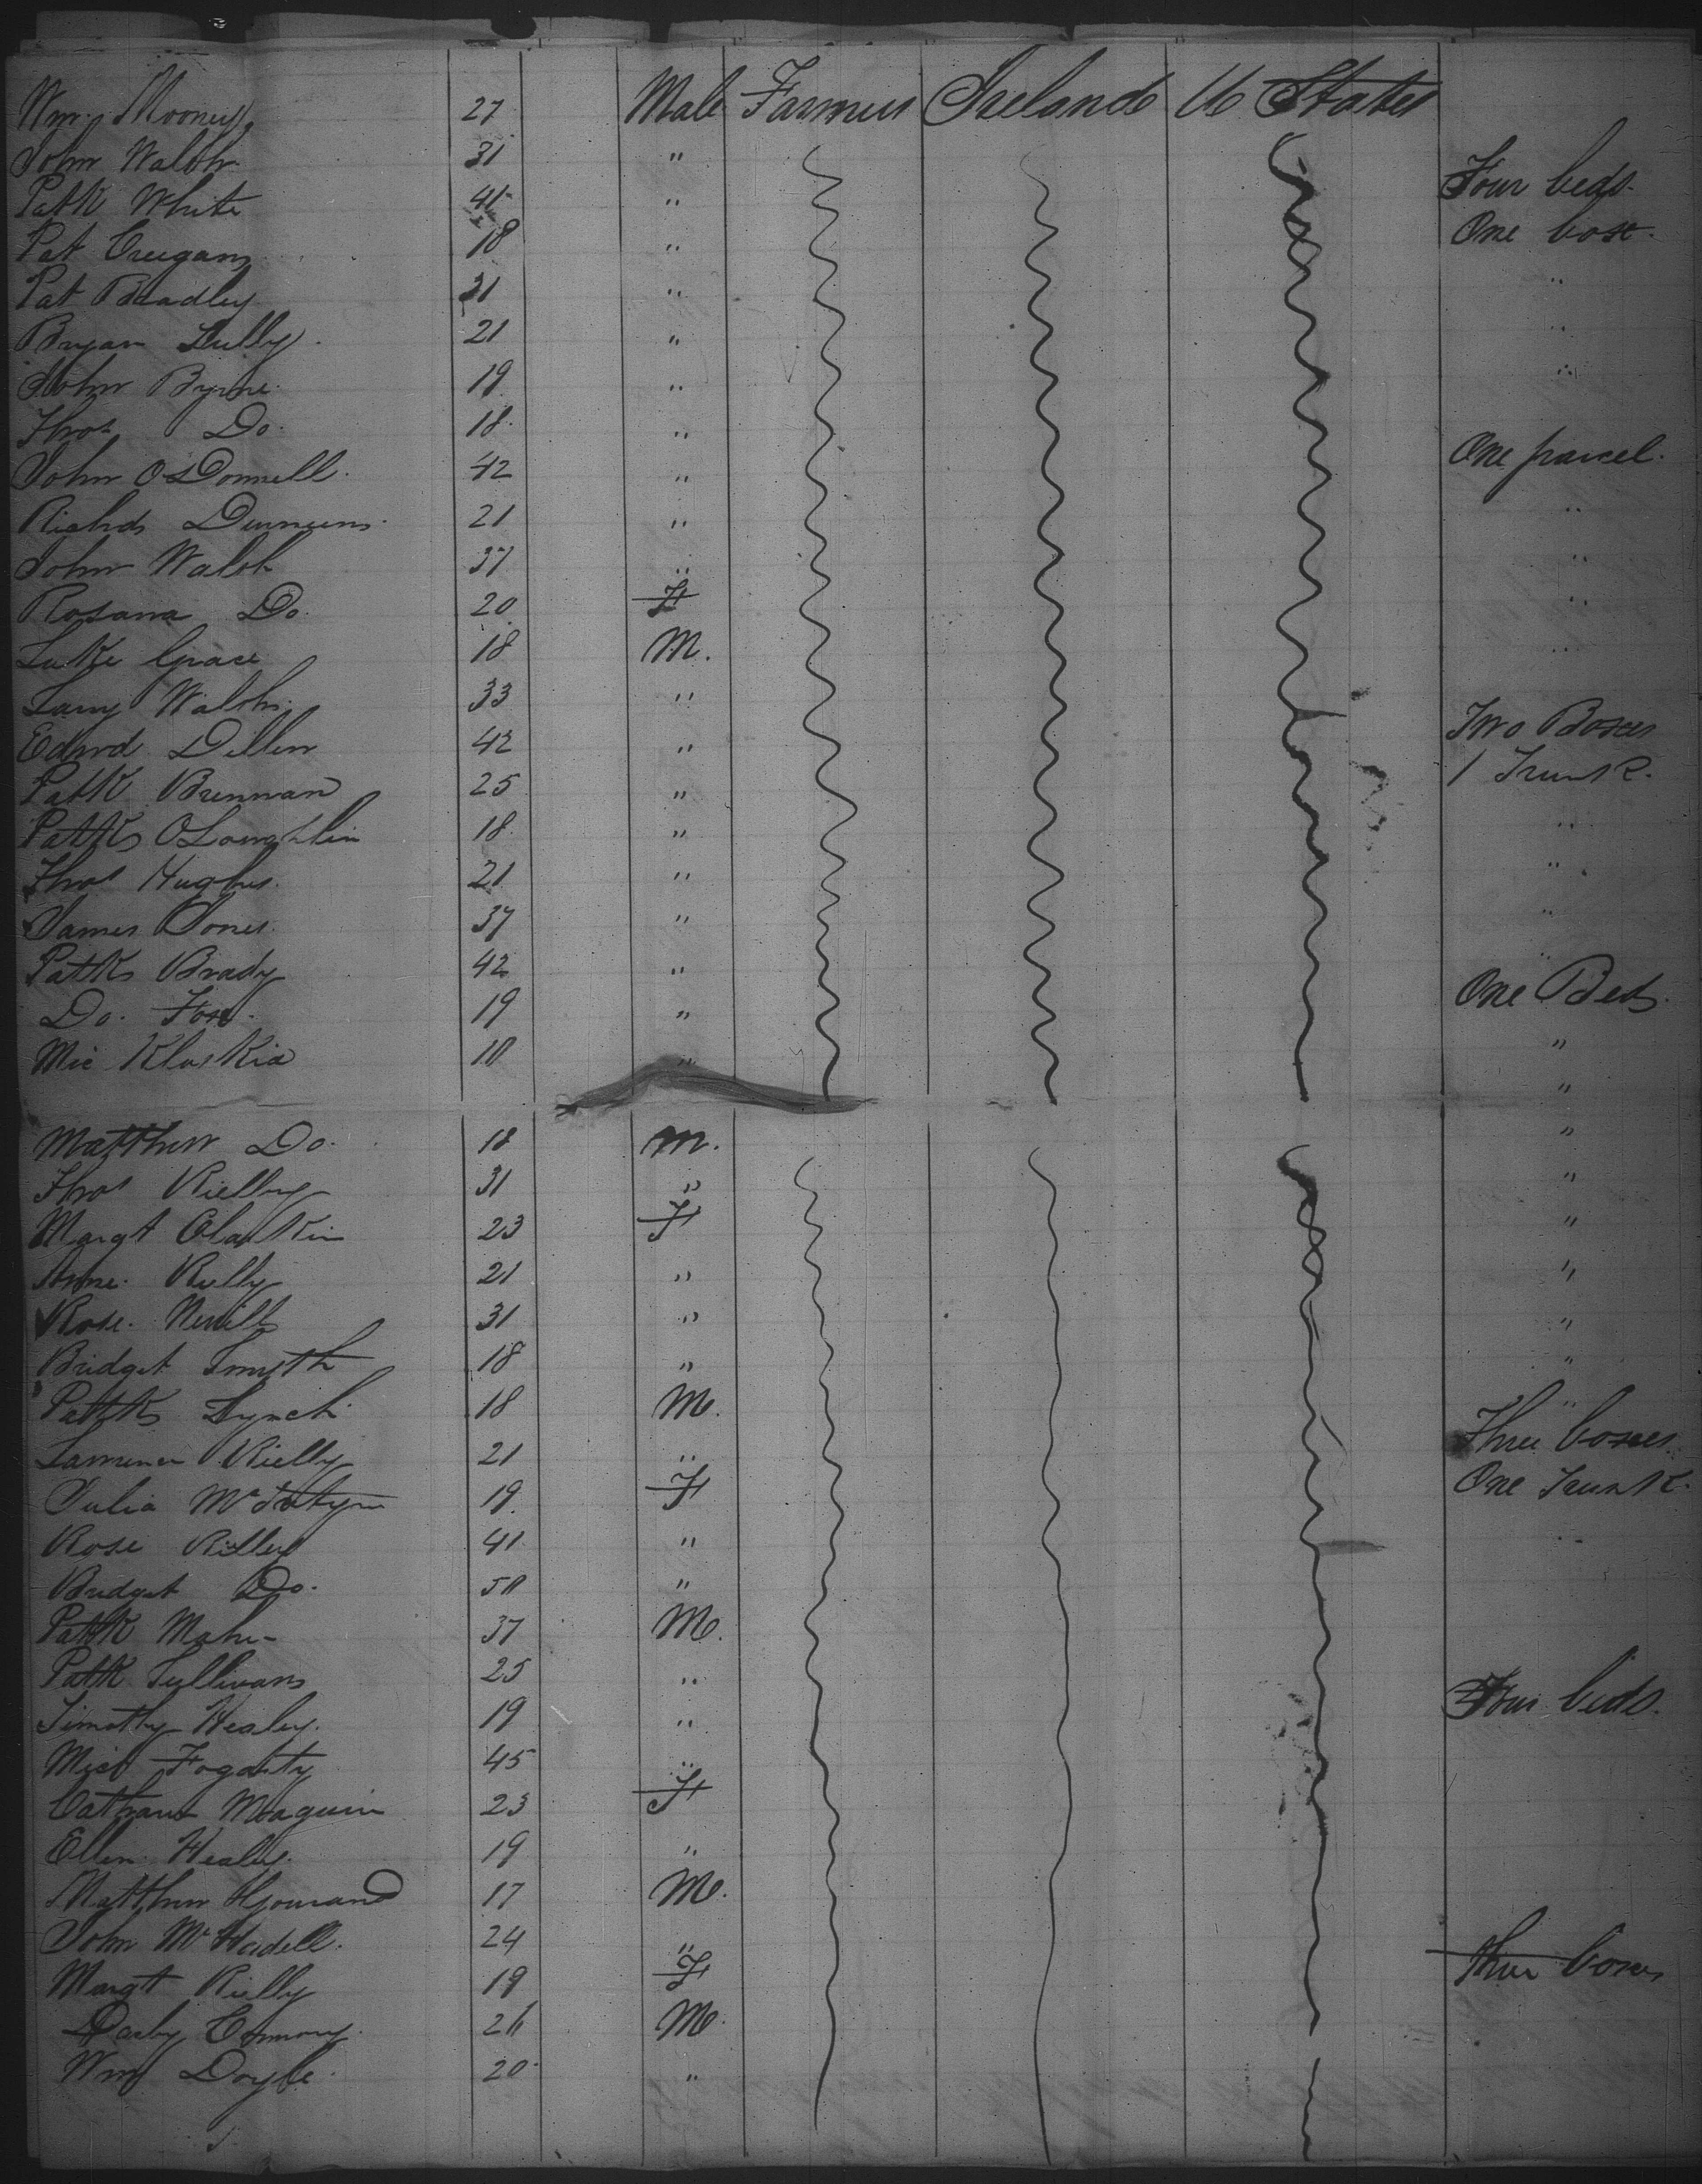 Wm. Mooney 27 Male Farmer Ireland U States
John Walsh 31 "
Patk White 41 " Four beds.
Pat Creegan 18 " One box.
Pat Bradley 31 " "
Bryan Lully 21 " "
John Byrne 19 " "
Thos Do. 18. "
John O'Donnell. 42 " One parcel.
Richd 21 " "
John Walsh 37 " "
Rosana Do. 20 F "
Luke Grace 18 M. "
Larry Walsh 33 "
Edwd Dillon 42 " Two Boxes
Patk Brennan 25 " 1 Trunk.
Patk O'Loughlin 18. " "
Thos Hughes. 21 " "
James Jones. 37 " "
Patk Brady 42 " "
Do. Fox. 19 " One Bed.
Mic 18 " "
"
Matthew Do. 18 M. "
Thos Rielly 31 " "
Margt Claskin 23 F "
Anne. Reilly 21 " "
Rose. 31 " "
Bridget Smyth 18 " "
Patk Lynch 18 M. "
Rielly 21 " Three boxes
Julia 19. F One Trunk.
Rose Rilley 41 " "
Bridget Do. 50 "
Patk Maher 37 M.
Patk Sullivan 25 "
Timothy Healey. 19 " Four beds.
Micl Fogarty 45 "
23 F
Ellen Healey. 19 "
Matthew 17 M.
John 24 "
Margt Rielly 19 F Three boxes
Darby 26 M.
Wm Doyle. 20 "